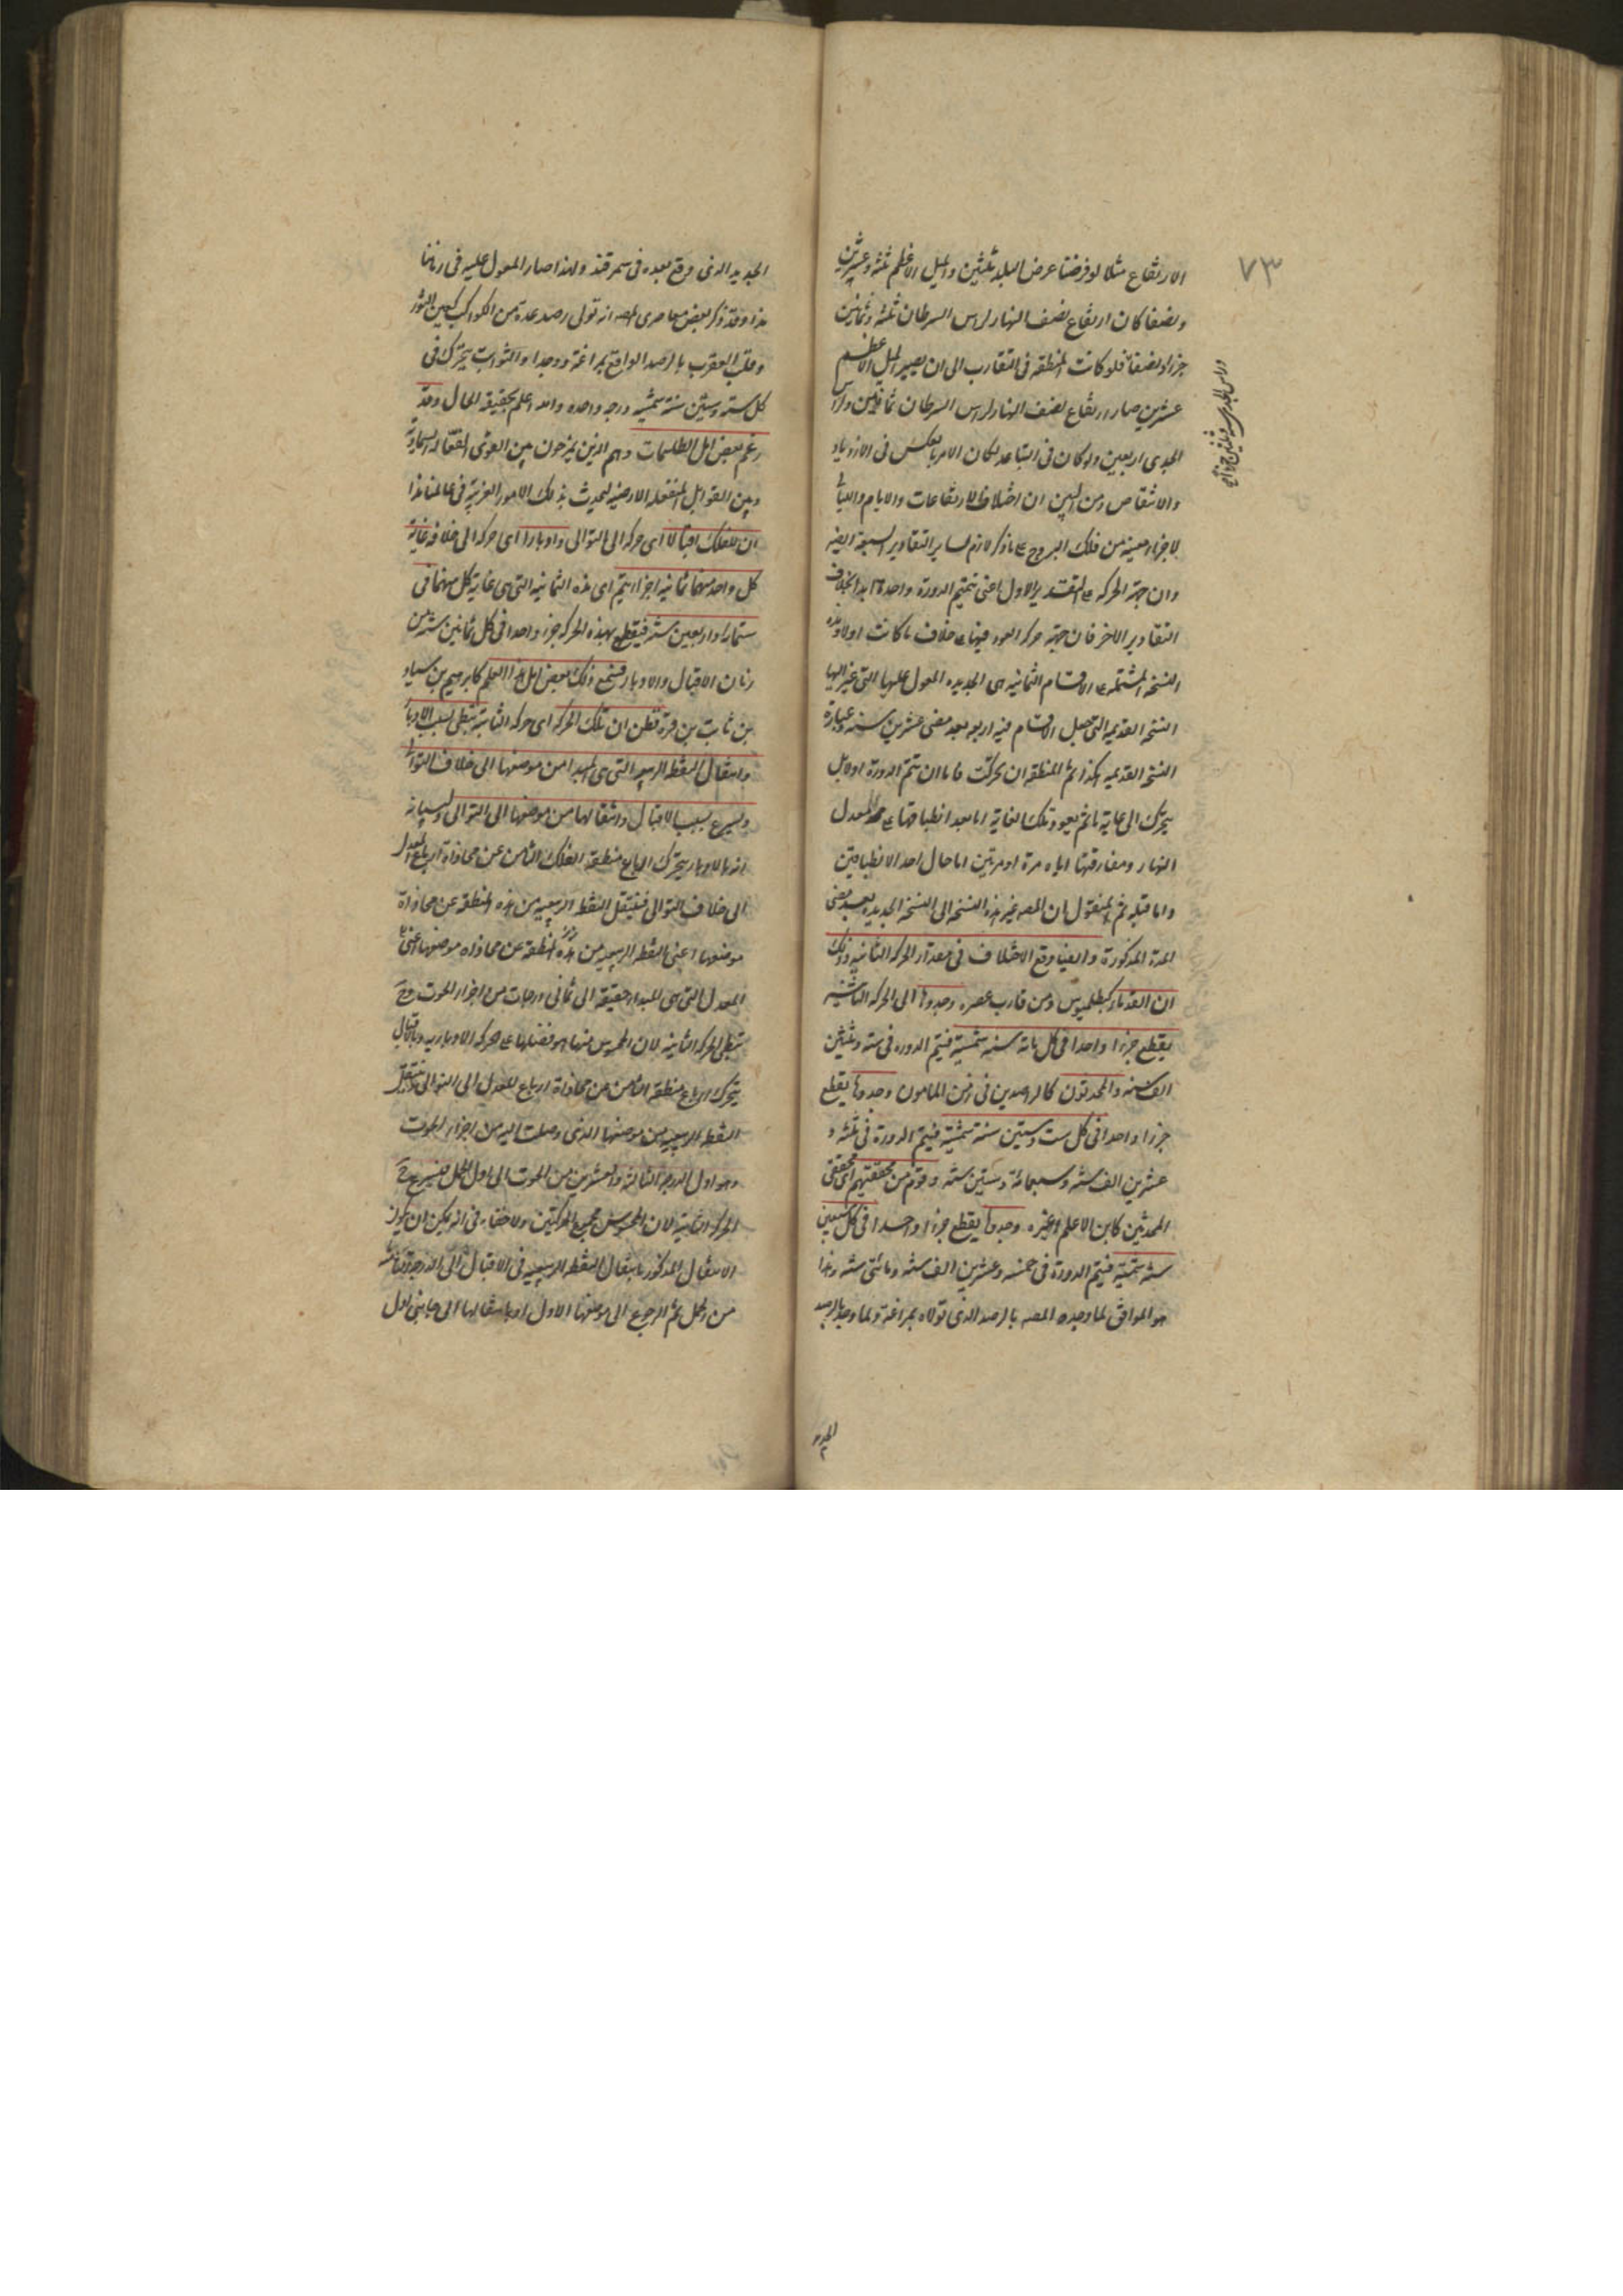 ٧٣
الارتفاع مثلا لو فرضنا عرض البلد ثلثين والميل الاعظم ثلثة وعشرين
ونصفا كان ارتفاع نصف النهار لراس السرطان ثلثة وثمانين
جزءا ونصفا فلو كانت المنطقه فى التقارب الى ان يصير الميل الاعظم
عشرين صار ارتفاع نصف النهار لراس السرطان ثمانين ولراس
الجدى اربعين ولو كان فى التباعد لكان الامر بالعكس فى الازدياد
والانتقاص ومن البين ان اختلاف الارتفاعات والايام والليالى
لاجزاء معينه من فلك البروج على ما ذكر لازم لساير التقادير السبعة ايضا
وان جهة الحركه على التقدير الاول اعنى تتميم الدورة واحدة ابدا بخلاف
التقادير الاخر فان جهة حركه العود فيها على خلاف ما كانت اولا وهذه
النسخه المشتمله على الاقسام الثمانيه هى الجديده المعول عليها التى غير اليها
النسخ القديمه التى جعل الاقسام فيه اربعه بعد مضى عشرين سنه وعبارة
النسخ القديمه هكذا ثم المنطقه ان تحركت فاما ان تتم الدورة اولا بل
يتحرك الى غاية ما ثم يعود وتلك الغاية اما بعد انطباقها على معدل
النهار ومفارقتها اياه مرة او مرتين اما حال احد الانطباقين
واما قبله ثم المنقول ان المصه غير هذه النسخه الى النسخه الجديده بعد مضى
المدة المذكورة وايضا وقع الاختلاف فى مقدار الحركه الثانيه وذلك
ان القدماء كبطلميوس ومن قارب عصره وجدوها اى الحركه الثانيه
يقطع جزءا واحدا فى كل مائة سنه شمسية فيتم الدوره فى سته وثلثين
الف سنه والمحدثون كالراصدين فى زمن المامون وجدوها يقطع
جزءا واحدا فى كل ست وستين سنة شمسية فيتم الدورة فى ثلثه و
عشرين الف سنه وسبعمائة وستين سنه وقوم من محققيهم اى محققى
المحدثين كابن الاعلم وغيره وجدوها يقطع جزءا واحدا فى كل سبعين
سنه شمسية فيتم الدورة فى خمسه وعشرين الف سنه ومائتى سنه وهذا
هو الموافق لما وجده المصه بالرصد الذى تولاه بمراغة ولما وجد بالرصد
الجديد
الجديد الذى وقع بعده فى سمرقند ولهذا صار المعول عليه فى زماننا
هذا وقد ذكر بعض معاصرى المصه انه تولى رصد عدة من الكواكب كعين الثور
وقلب العقرب بالرصد الواقع بمراغة ووجدا والثوابت يتحرك فى
كل سته وستين سنة شمسيه درجه واحده والله اعلم بحقيقه الحال وقد
زعم بعض اهل الطلسمات وهم الذين يمزجون بين القوى الفعاله السماوية
وبين القوابل المنفعله الارضيه ليحدث بذلك الامور الغريبه فى عالمنا هذا
ان للفلك اقبالا اى حركه الى التوالى وادبارا اى حركه الى خلافه غاية
كل واحد منهما ثمانيه اجزاء يتم اى هذه الثمانيه التى هى غاية كل منهما فى
ستمائة واربعين سنه فيقطع بهذه الحركه جزءا واحدا فى كل ثمانين سنه من
زمان الاقبال والادبار فسمع ذلك بعض اهل هذا العلم كابرهيم بن سنان
بن ثابت بن قرة فظن ان تلك الحركه اى حركه الثانية تبطى بسبب الادبار
وانتقال النقطه الربيعيه التى هى المبدا من موضعها الى خلاف التوالى
ويسرع بسبب الاقبال وانتقالها من موضعها الى التوالى وبيانه
انه بالادبار يتحرك ارباع منطقه الفلك الثامن عن محاذاة ارباع المعدل
الى خلاف التوالى فينتقل النقط الربيعيه من هذه المنطقه عن محاذاة
موضعها اعنى النقطه الربيعيه من هذه المنطقة عن محاذاه موضعها اعنى
المعدل التى هى المبداء حقيقة الى ثمانى درجات من اجزاء الحوت وح
تبطى الحركه الثانيه لان المحسوس منها هو فضلها على حركه الادبار وبالاقبال
يتحرك ارباع منطقه الثامن من محاذاة ارباع المعدل الى التوالى فينتقل
النقطه الربيعيه من موضعها الذى وصلت اليه من اجزاء الحوت
وهو اول الدرجه الثالثه والعشرين من الحوت الى اول الحمل فيسرع ح
الحركه الثانيه لان المحسوس مجموع الحركتين ولا خفاء فى انه يمكن ان يكون
الانتقال المذكور بانتقال النقطه الربيعيه فى الاقبال الى الدرجه الثامنه
من الحمل ثم الرجوع الى موضعها الاول او بانتقالها الى جانبى اول